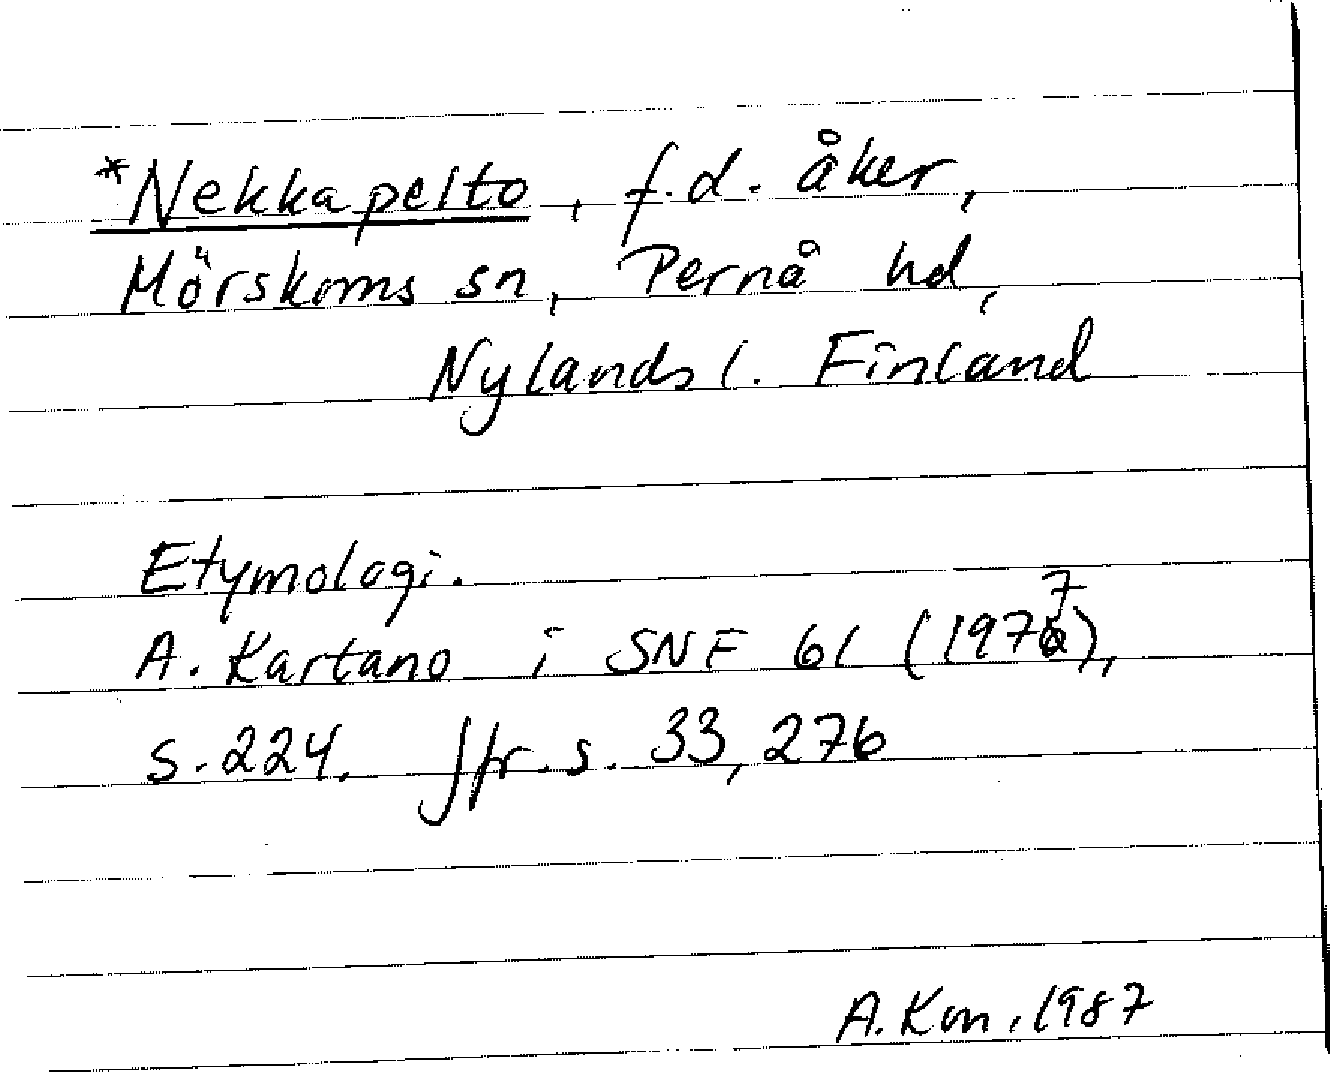 *Nekkapelto, f.d. åker,
Mörskoms sn, Pernå hd,
Nylands l. Finland
Etymologi.
A. Kartano i SNF 61 (1977),
s. 224. Jfr. s. 33, 276
A. Kan. 1987